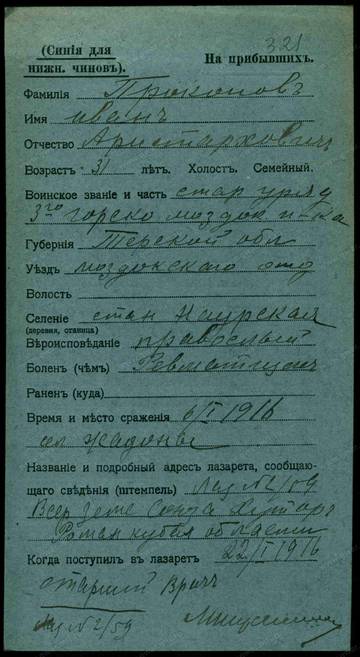 321
(Синія для На прибывшихъ.
нижн. чиновъ).
Фамилія Прокоповъ
Имя иванъ
Отчество Аристарховичъ
Возрастъ 31 лѣтъ. Холостъ. Семейный.
Воинское званіе и часть стар уряд
3го горско моздок п-ка
Губернія Терской обл
Уѣздъ моздокскаго отд
Волость
Селеніе стан Наурская
(деревня, станица)
Вѣроисповѣданіе правослный
Боленъ (чѣмъ) Ревматизмъ
Раненъ (куда)
Время и мѣсто сраженія 6/I 1916
сел
Названіе и подробный адресъ лазарета, сообщаю-
щаго свѣдѣнія (штемпель) Лаз №2/59
Всер Земс Союза Хутаръ
Роман кубан области
Когда поступилъ въ лазаретъ 22/I 1916
старшій Врачъ
Лаз №2/59